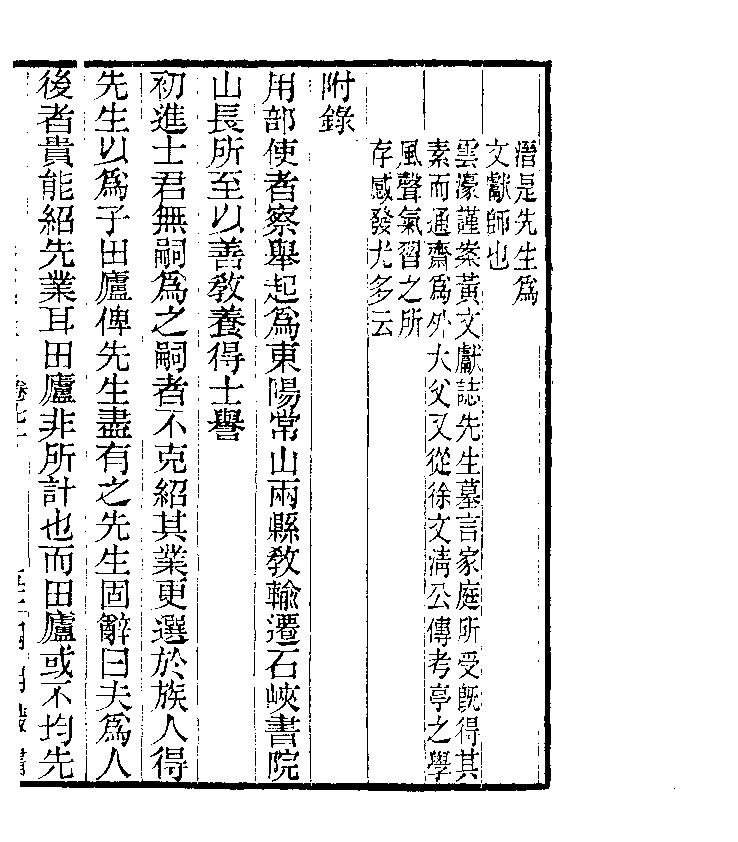 溍是先生爲
文獻師也
雲濠謹案黃文獻誌先生墓言家庭所受旣得其
素而通齋爲外大父又從徐文淸公傳考亭之學
風聲氣習之所
存感發尤多云
附錄
用部使者察舉起爲東陽常山兩縣敎輸遷石峽書院
山長所至以善敎養得士譽
初進士君無嗣爲之嗣者不克紹其業更選於族人得
先生以爲子田廬俾先生盡有之先生固辭曰夫爲人
後者貴能紹先業耳田廬非所計也而田廬或不均先
卷七十